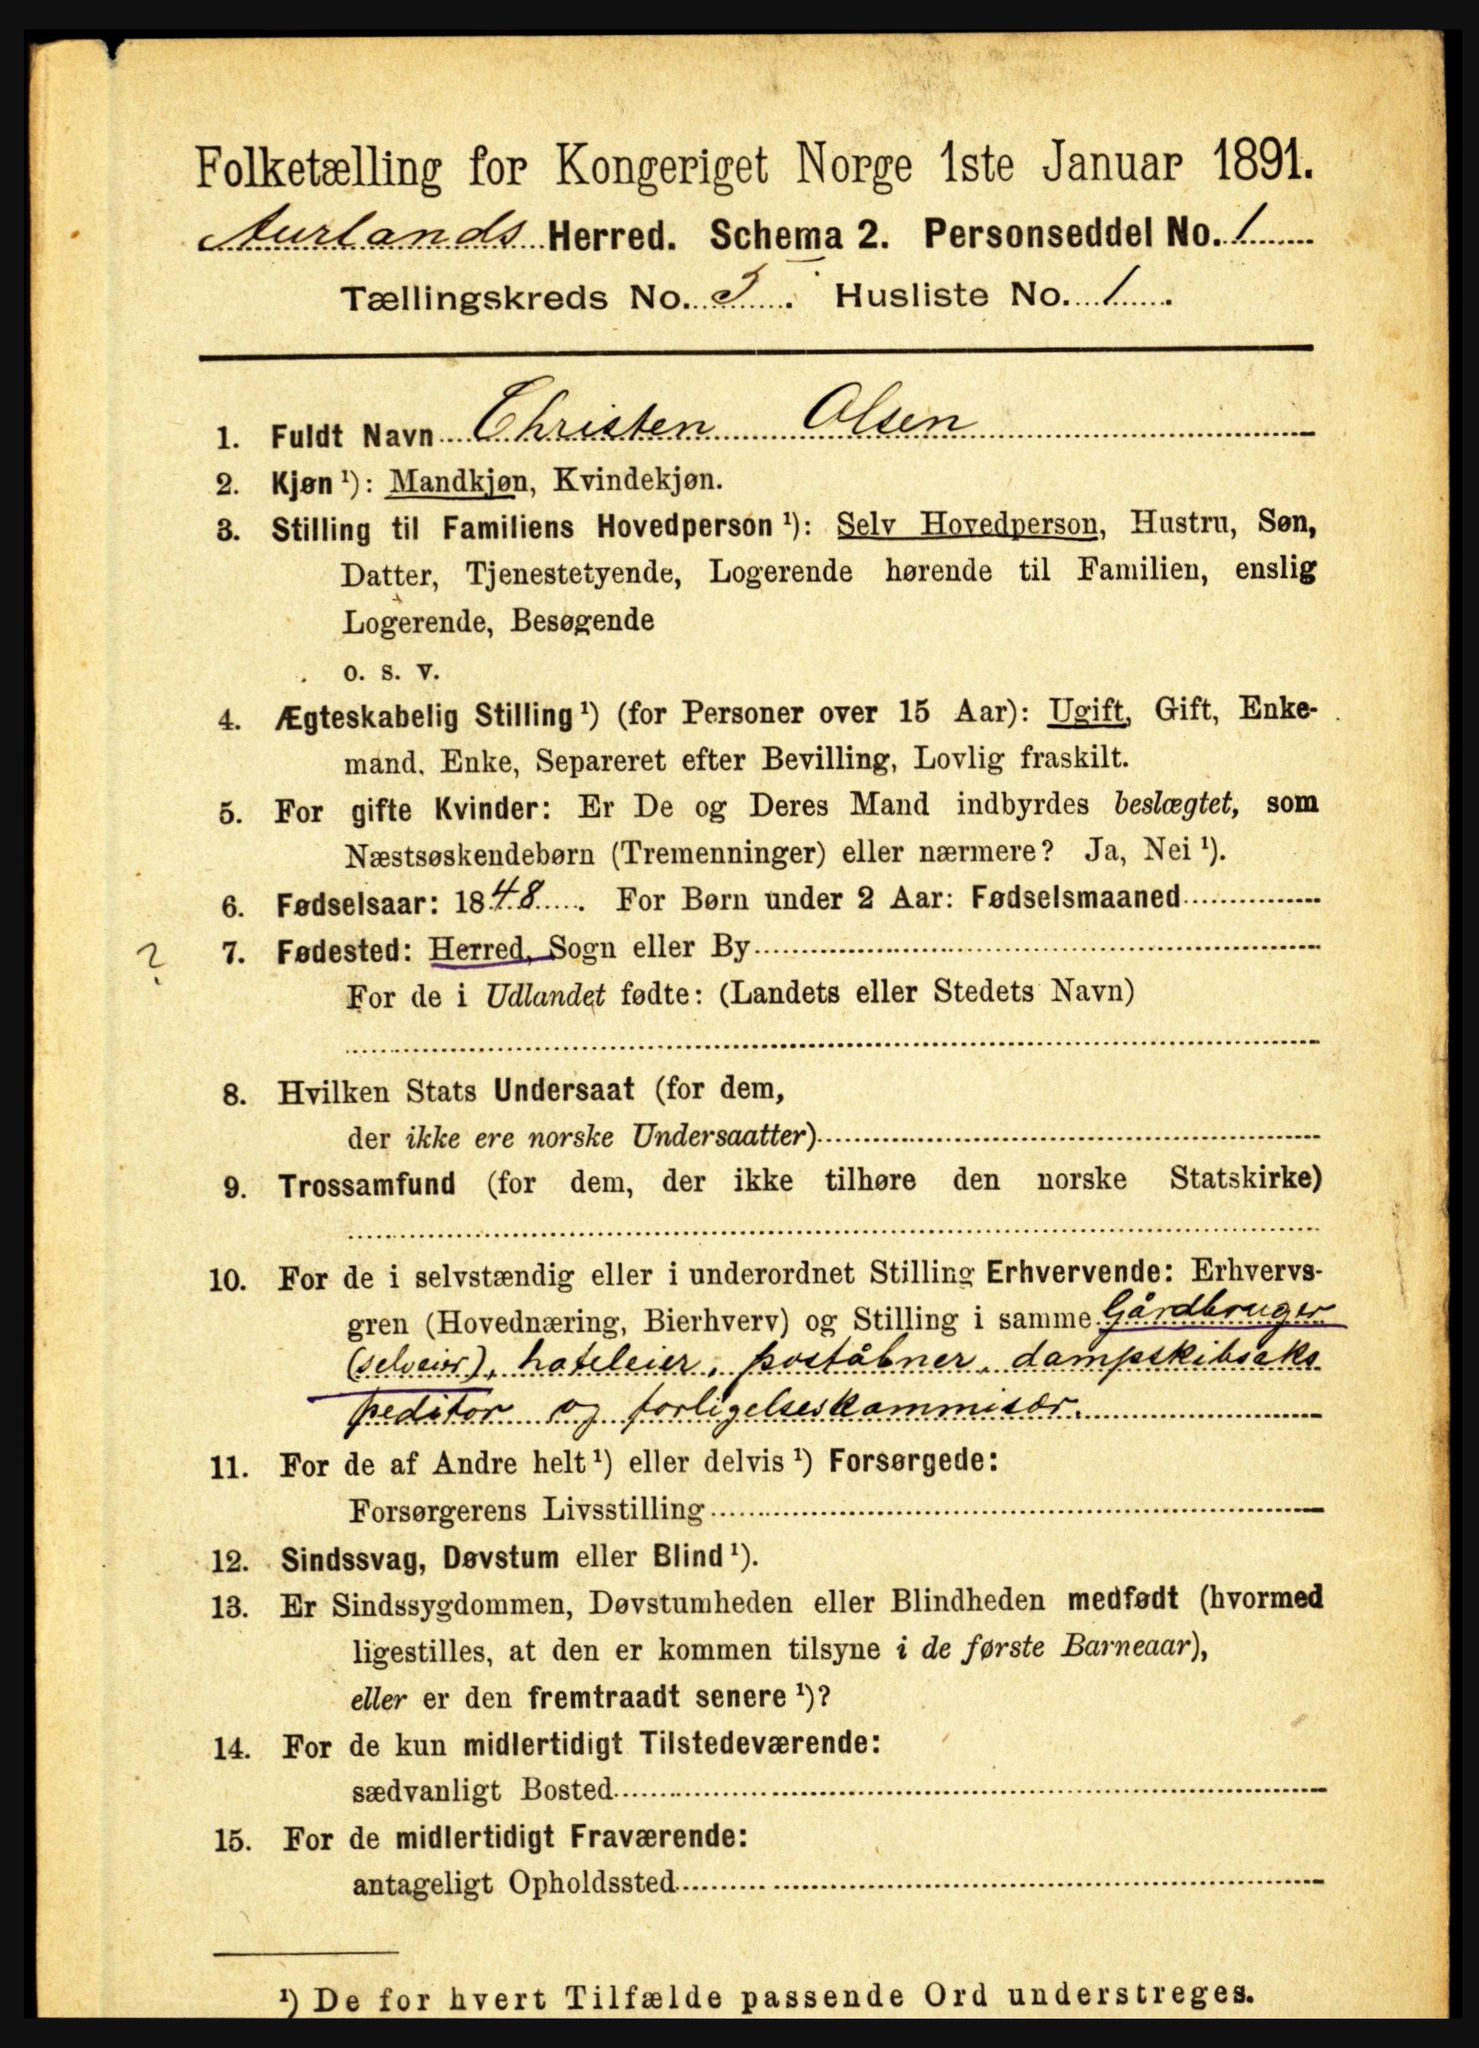 Folketælling for Kongeriget Norge 1ste Januar 1891.
Aurlands Herred. Schema 2. Personseddel No. 1
Tællingskreds No. 3. Husliste No. 1.
1. Fuldt Navn Christen Olsen
2. Kjøn ¹): Mandkjøn, Kvindekjøn.
3. Stilling til Familiens Hovedperson ¹): Selv Hovedperson, Hustru, Søn,
Datter, Tjenestetyende, Logerende hørende til Familien, enslig
Logerende, Besøgende
o. s. v.
4. Ægteskabelig Stilling ¹) (for Personer over 15 Aar): Ugift, Gift, Enke-
mand, Enke, Separeret efter Bevilling, Lovlig fraskilt.
5. For gifte Kvinder: Er De og Deres Mand indbyrdes beslægtet, som
Næstsøskendebørn (Tremenninger) eller nærmere? Ja, Nei ¹).
6. Fødselsaar: 1848. For Børn under 2 Aar: Fødselsmaaned
? 7. Fødested: Herred, Sogn eller By
For de i Udlandet fødte: (Landets eller Stedets Navn)
8. Hvilken Stats Undersaat (for dem,
der ikke ere norske Undersaatter)
9. Trossamfund (for dem, der ikke tilhøre den norske Statskirke)
10. For de i selvstændig eller i underordnet Stilling Erhvervende: Erhvervs-
gren (Hovednæring, Bierhverv) og Stilling i samme Gårdbruger
(selveier), hoteleier, poståbner, dampskibseks
peditor og forligelseskommisær.
11. For de af Andre helt ¹) eller delvis ¹) Forsørgede:
Forsørgerens Livsstilling
12. Sindssvag, Døvstum eller Blind ¹).
13. Er Sindssygdommen, Døvstumheden eller Blindheden medfødt (hvormed
ligestilles, at den er kommen tilsyne i de første Barneaar),
eller er den fremtraadt senere ¹)?
14. For de kun midlertidigt Tilstedeværende:
sædvanligt Bosted
15. For de midlertidigt Fraværende:
antageligt Opholdssted
¹) De for hvert Tilfælde passende Ord understreges.